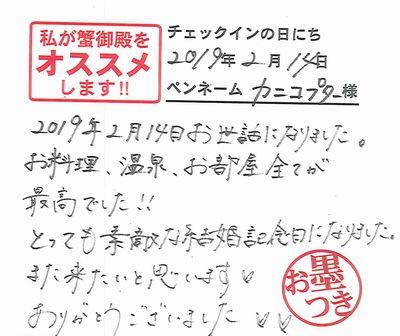 私が蟹御殿を
オススメ
します!!
チェックインの日にち
2019年2月14日
ペンネーム カニコプター様
2019年2月14日お世話になりました。
お料理、温泉、お部屋全てが
最高でした!!
とっても素敵な結婚記念日になりました。
また来たいと思います♡♡
ありがとうございました♡♡
お墨つき